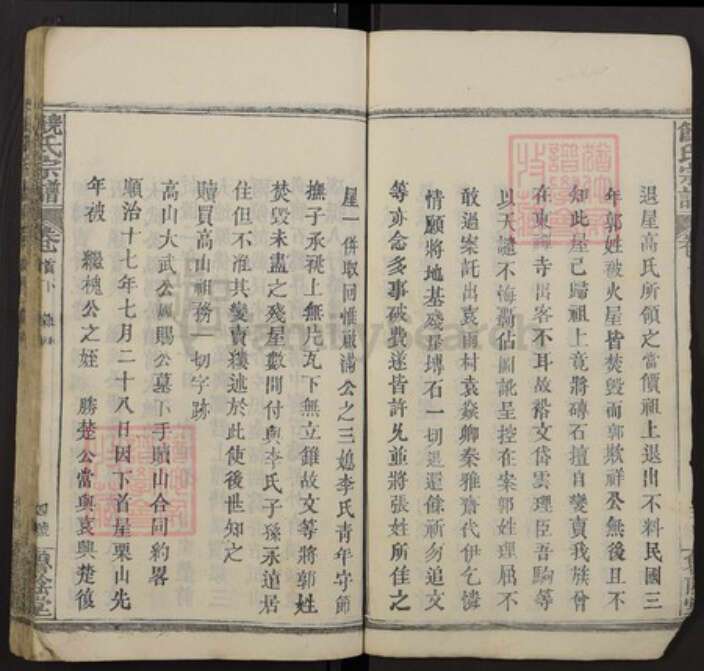 退屋高氏所領之當價祖上退出不料民國三
年郭姓被火屋皆焚毀而郭欺祥公無後且不
知此屋已歸祖上竟將磚石擅自變賣我族曾
在東禪寺出客不耳故裕文岱雲理臣吾駒等
以天譴不悔霸佔圖訛呈控在案郭姓理屈不
敢過案託出袁雨村袁焱卿秦雅齋代伊乞憐
情願將地基殘屋磚石一切退還餘祈勿追文
等亦念多事破費遂皆許允並將張姓所住之
屋一併取回惟啟滿公之三媳李氏青年守節
撫子承祧上無片瓦下無立錐故文等將郭姓
焚毀未盡之殘屋數間付與李氏子孫永遠居
住但不准其變賣縷述於此使後世知之
贖買高山祖務一切字跡
高山大武公鳳賜公墓下手贖山合同約畧
順治十七年七月二十八日因下首屋栗山先
年被 繼槐公之姪 勝楚公當與袁興楚復
饒氏宗譜